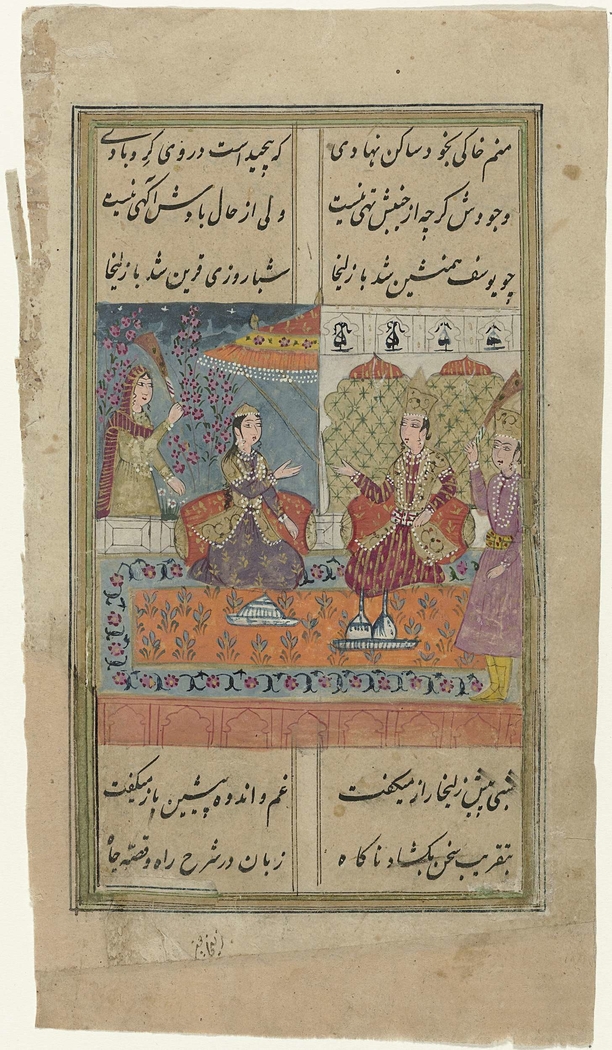 منم خاکی بخود ساکن نهادی که پیچیداست در وی کردبادی
وجودش کرچه از جنبش تهی نیست ولی از حال بادش آگهی نیست
چو یوسف همنشین شد با زلیخا شباروزی قرین شد با زلیخا
شبی پیش زلیخا راز میکفت غم و اندوه پیشین باز میکفت
بتقریب سخن بکشاد ناکاه زبان در شرح راه و قصه چاه